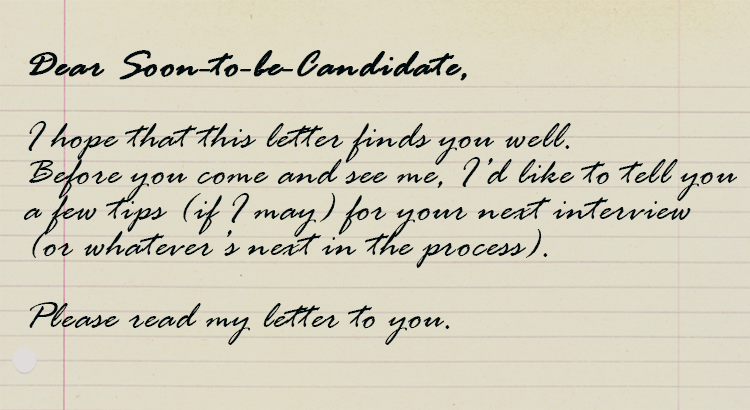 Dear Soon-to-be-Candidate,
I hope that this letter finds you well.
Before you come and see me, I'd like to tell you
a few tips (if I may) for your next interview
(or whatever's next in the process).
Please read my letter to you.